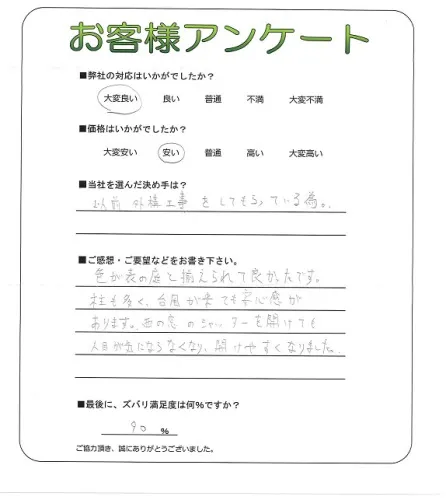 お客様アンケート
■弊社の対応はいかがでしたか?
大変良い 良い 普通 不満 大変不満
■価格はいかがでしたか?
大変安い 安い 普通 高い 大変高い
■当社を選んだ決め手は?
以前 外構工事 を してもらっている為。
■ご感想・ご要望などをお書き下さい。
色が表の庭と揃えられて良かったです。
柱も多く、台風が来ても安心感が
あります。西の窓のシャッターを開けても
人目が気にならなくなり、開けやすくなりました。
■最後に、ズバリ満足度は何%ですか?
90 %
ご協力頂き、誠にありがとうございました。